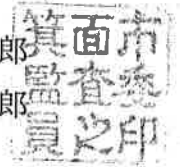 郎
郎
箕面市
監査委
員之印